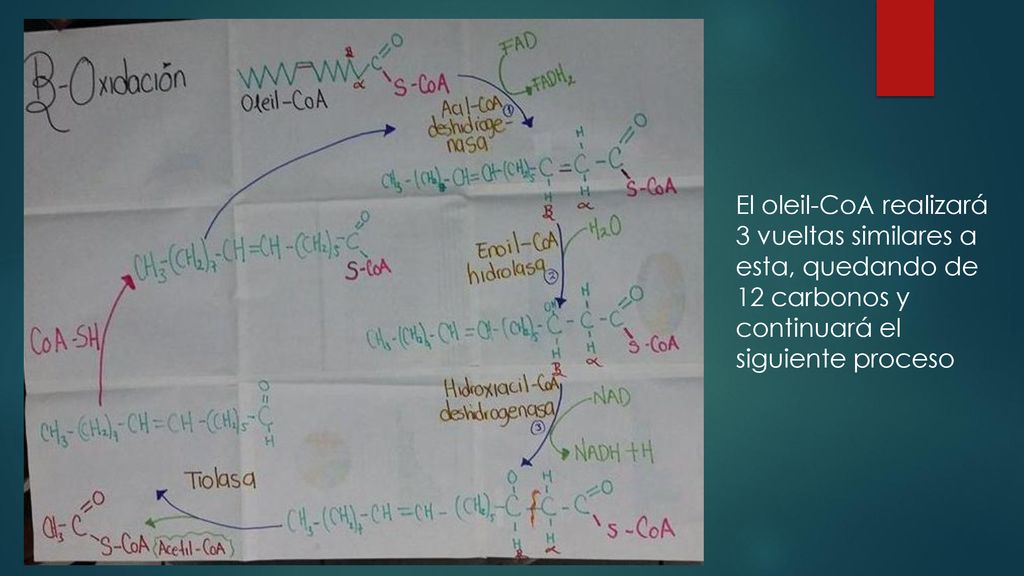 β-Oxidación
Oleil-CoA
β
α
C
O
S-CoA
FAD
FADH₂
Acil-CoA ①
deshidroge-
nasa
CH₃-(CH₂)₇-CH=CH-(CH₂)₅-C=C-C
H
O
S-CoA
H
β
α
H₂O
Enoil-CoA
hidrolasa ②
CH₃-(CH₂)₇-CH=CH-(CH₂)₅-C-C-C
OH
H
O
S-CoA
H
H
β
α
Hidroxiacil-CoA
deshidrogenasa
③
NAD
NADH+H
CH₃-(CH₂)₇-CH=CH-(CH₂)₅-C-C-C
O
H
O
S-CoA
H
H
β
α
Tiolasa
CH₃-C
O
S-CoA (Acetil-CoA)
CH₃-(CH₂)₇-CH=CH-(CH₂)₅-C
O
H
CoA-SH
CH₃-(CH₂)₇-CH=CH-(CH₂)₅-C
O
S-CoA
El oleil-CoA realizará
3 vueltas similares a
esta, quedando de
12 carbonos y
continuará el
siguiente proceso